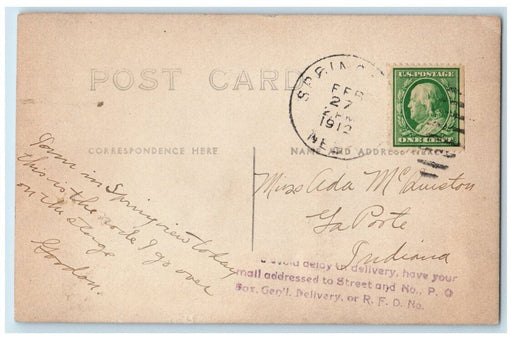 POST CARD
U.S. POSTAGE
ONE CENT
FEB
27
1912
NE
CORRESPONDENCE HERE
NAME AND ADDRESS HERE
Down in Springview today
this is the road I go over
on the stage
Gordon.
Miss Ada
La Porte
Indiana
avoid delay in delivery, have your
mail addressed to Street and No., P. O
Box, Gen'l. Delivery, or R. F. D. No.